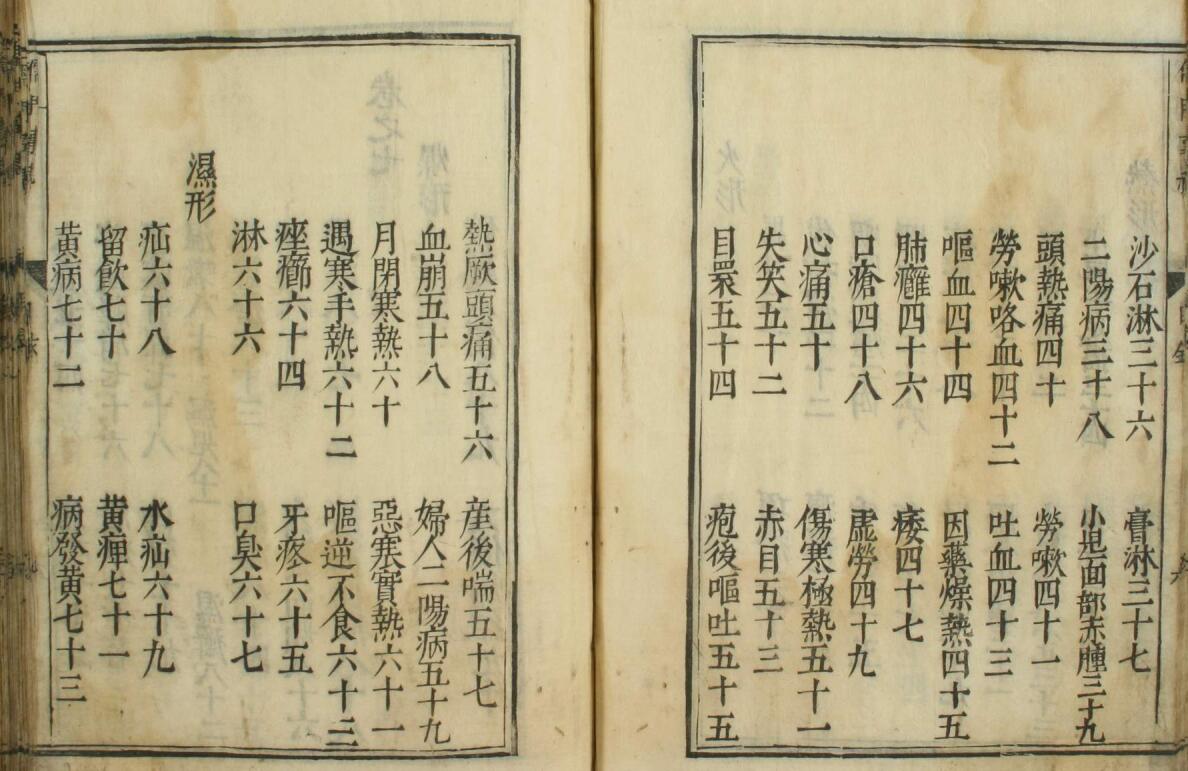 沙石淋三十六　膏淋三十七
二陽病三十八　小児面部赤腫三十九
頭熱痛四十　勞嗽四十一
勞嗽咯血四十二　吐血四十三
嘔血四十四　因藥燥熱四十五
肺癰四十六　痿四十七
口瘡四十八　虛勞四十九
心痛五十　傷寒極熱五十一
失笑五十二　赤目五十三
目睘五十四　疱後嘔吐五十五
熱厥頭痛五十六　産後喘五十七
血崩五十八　婦人二陽病五十九
月閉寒熱六十　惡寒實熱六十一
遇寒手熱六十二　嘔逆不食六十三
痤癤六十四　牙疼六十五
淋六十六　口臭六十七
濕形
疝六十八　水疝六十九
留飲七十　黃痺七十一
黃病七十二　病發黃七十三